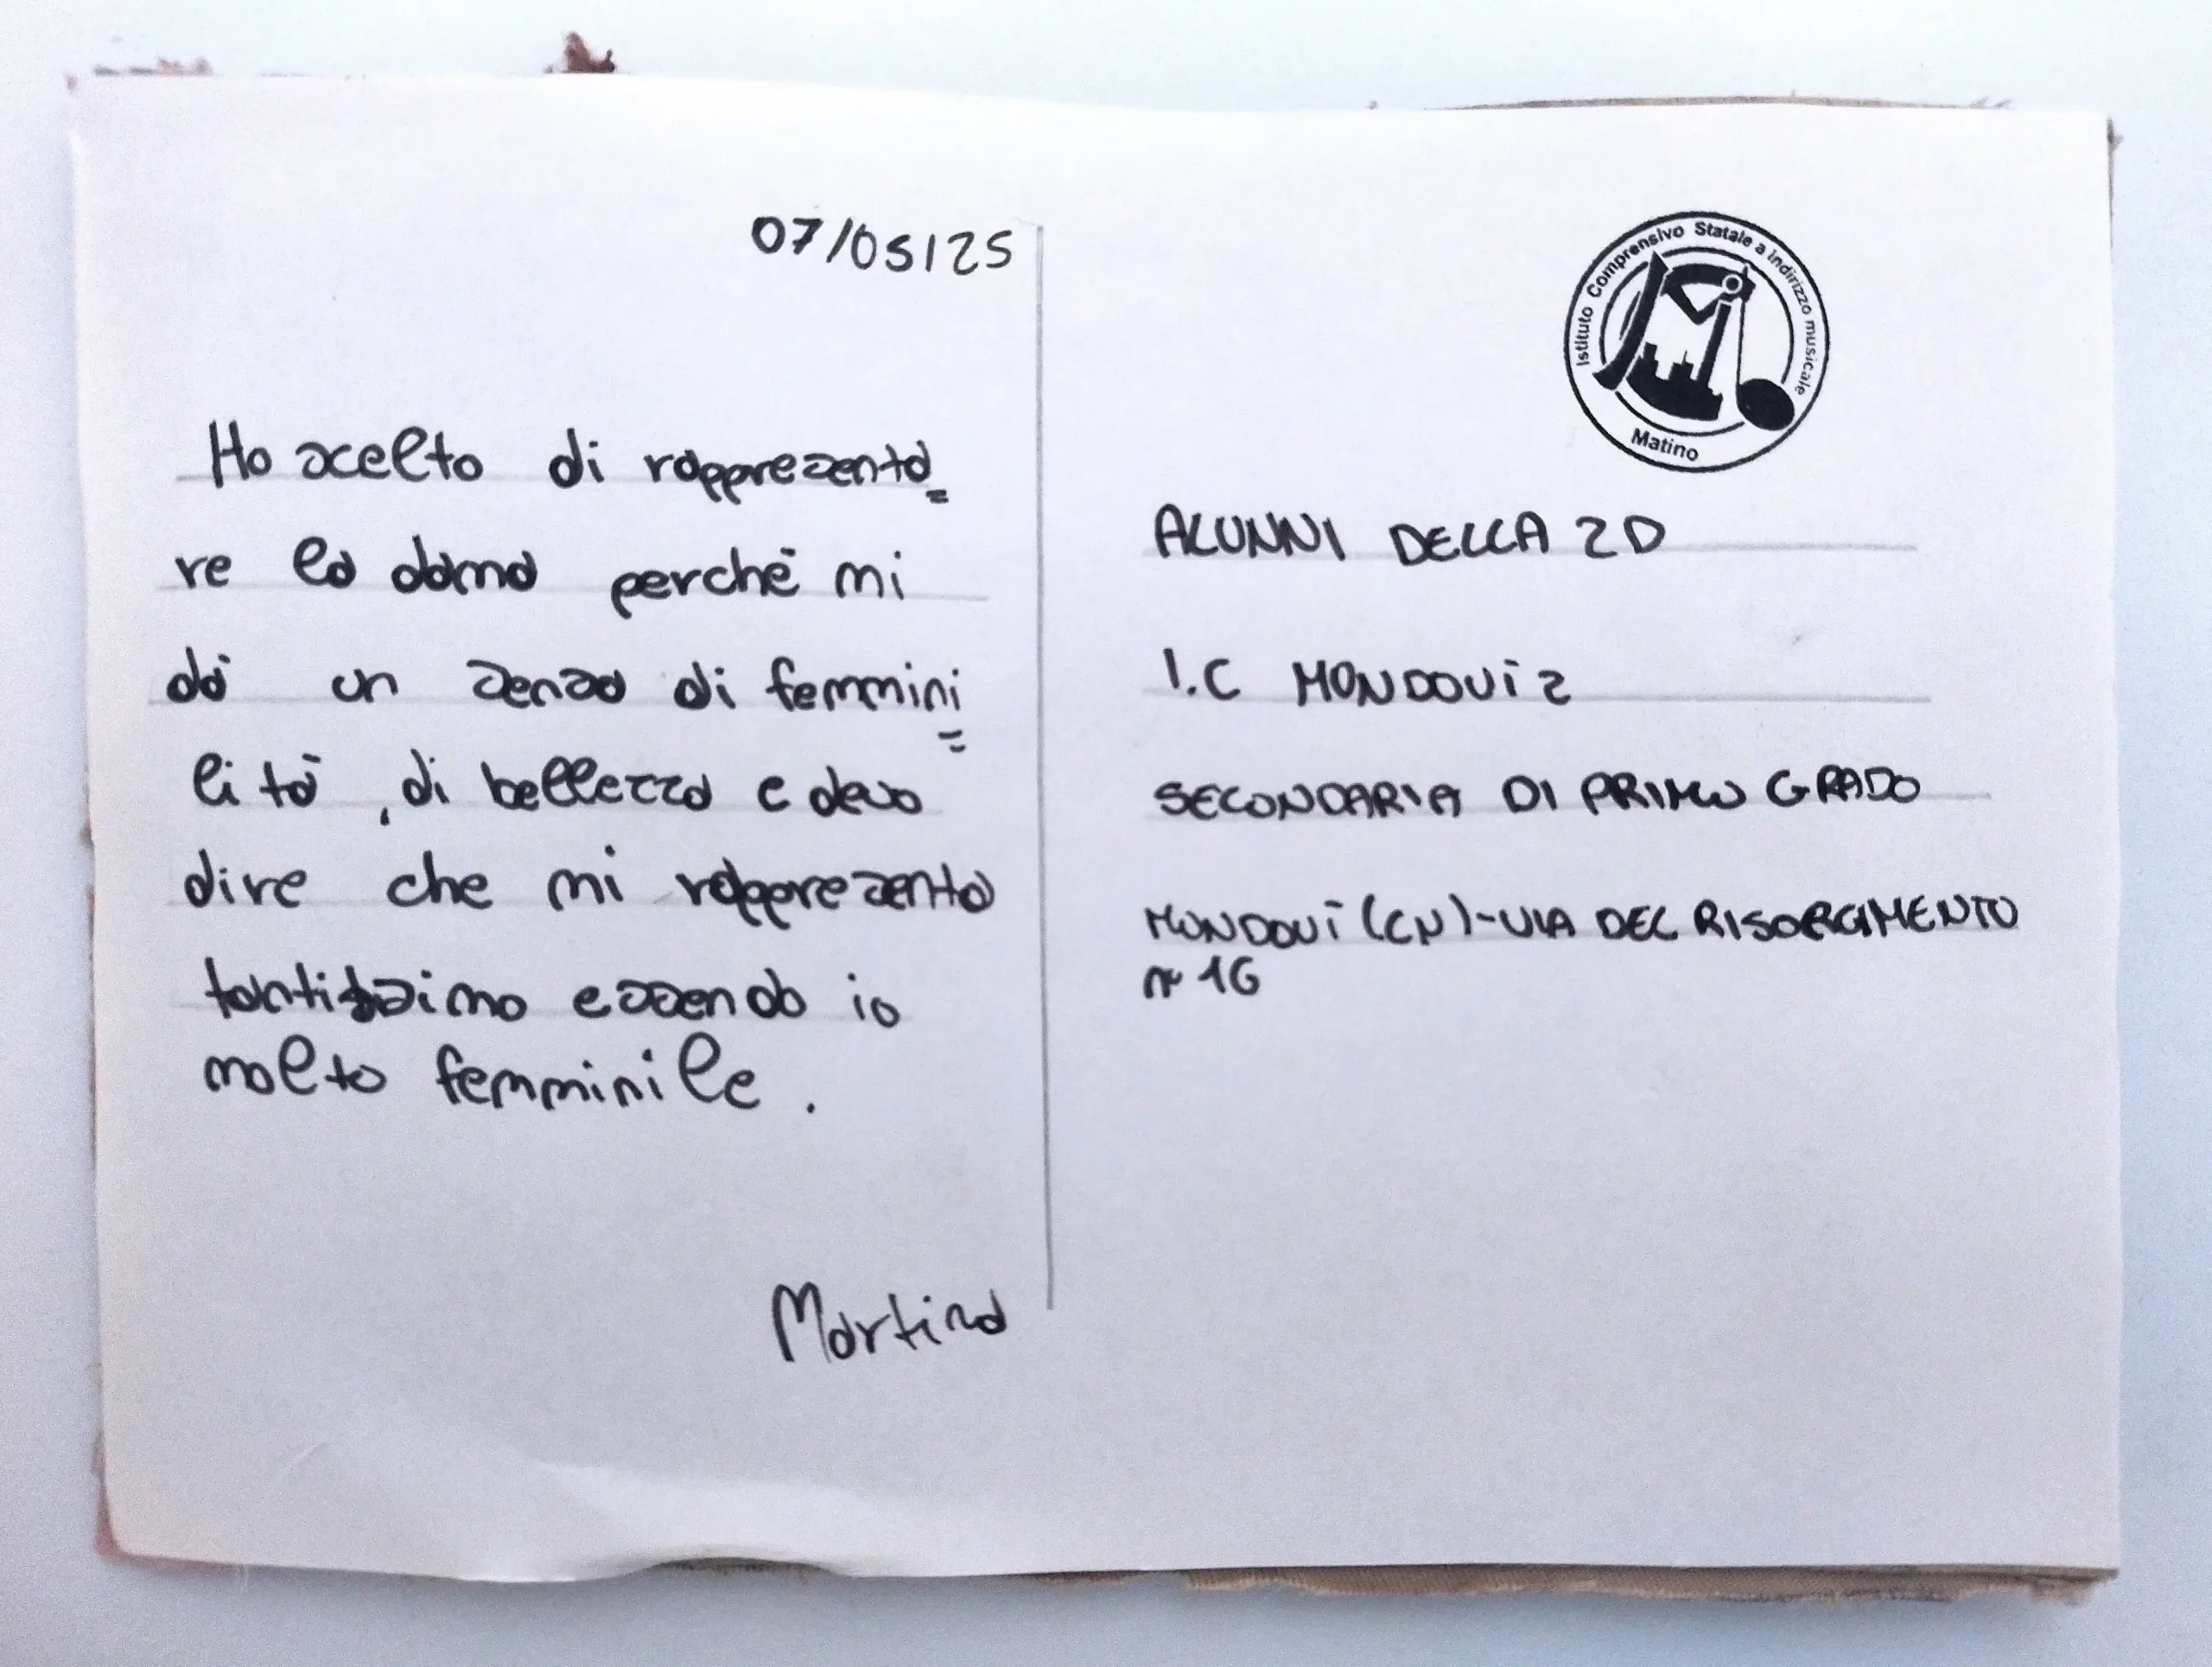 07/05/25
Ho scelto di rappresenta=
re la dama perchè mi
dà un senso di femmini
=
lità, di bellezza e devo
dire che mi rappresenta
tantissimo essendo io
molto femminile.
Martina
Istituto Comprensivo Statale a indirizzo musicale
Matino
ALUNNI DELLA 2D
I.C MONDOVÌ 2
SECONDARIA DI PRIMO GRADO
MONDOVÌ (CN)-VIA DEL RISORGIMENTO
n° 16